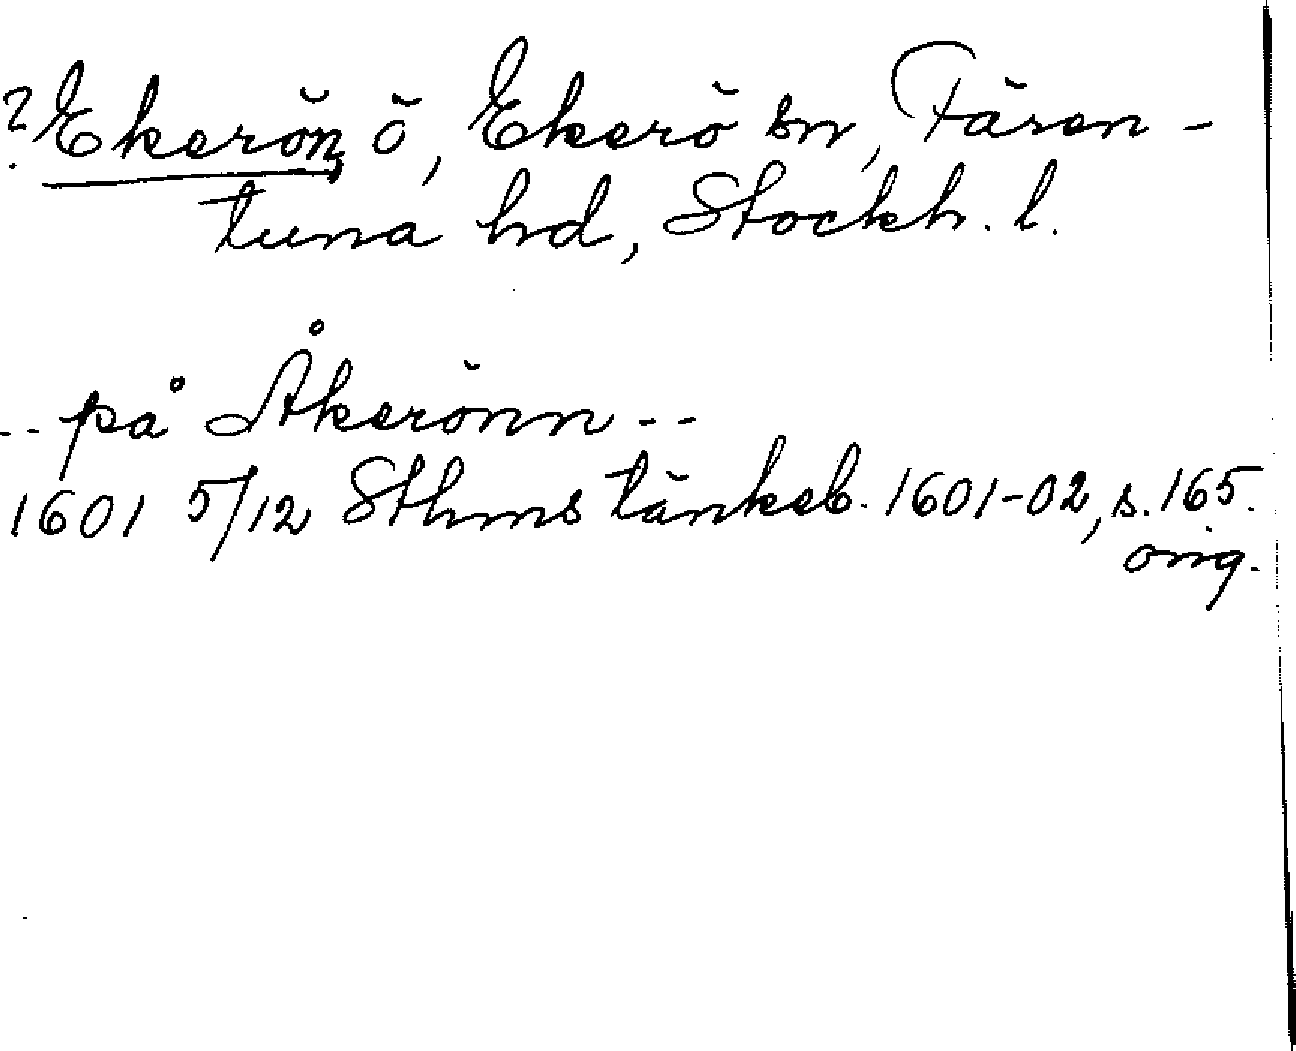 ? Ekerön, ö, Ekerö sn, Fären-
tuna hd, Stockh. l.
-- på Åkerönn --
1601 5/12 Sthms tänkeb. 1601-02, s. 165.
orig.